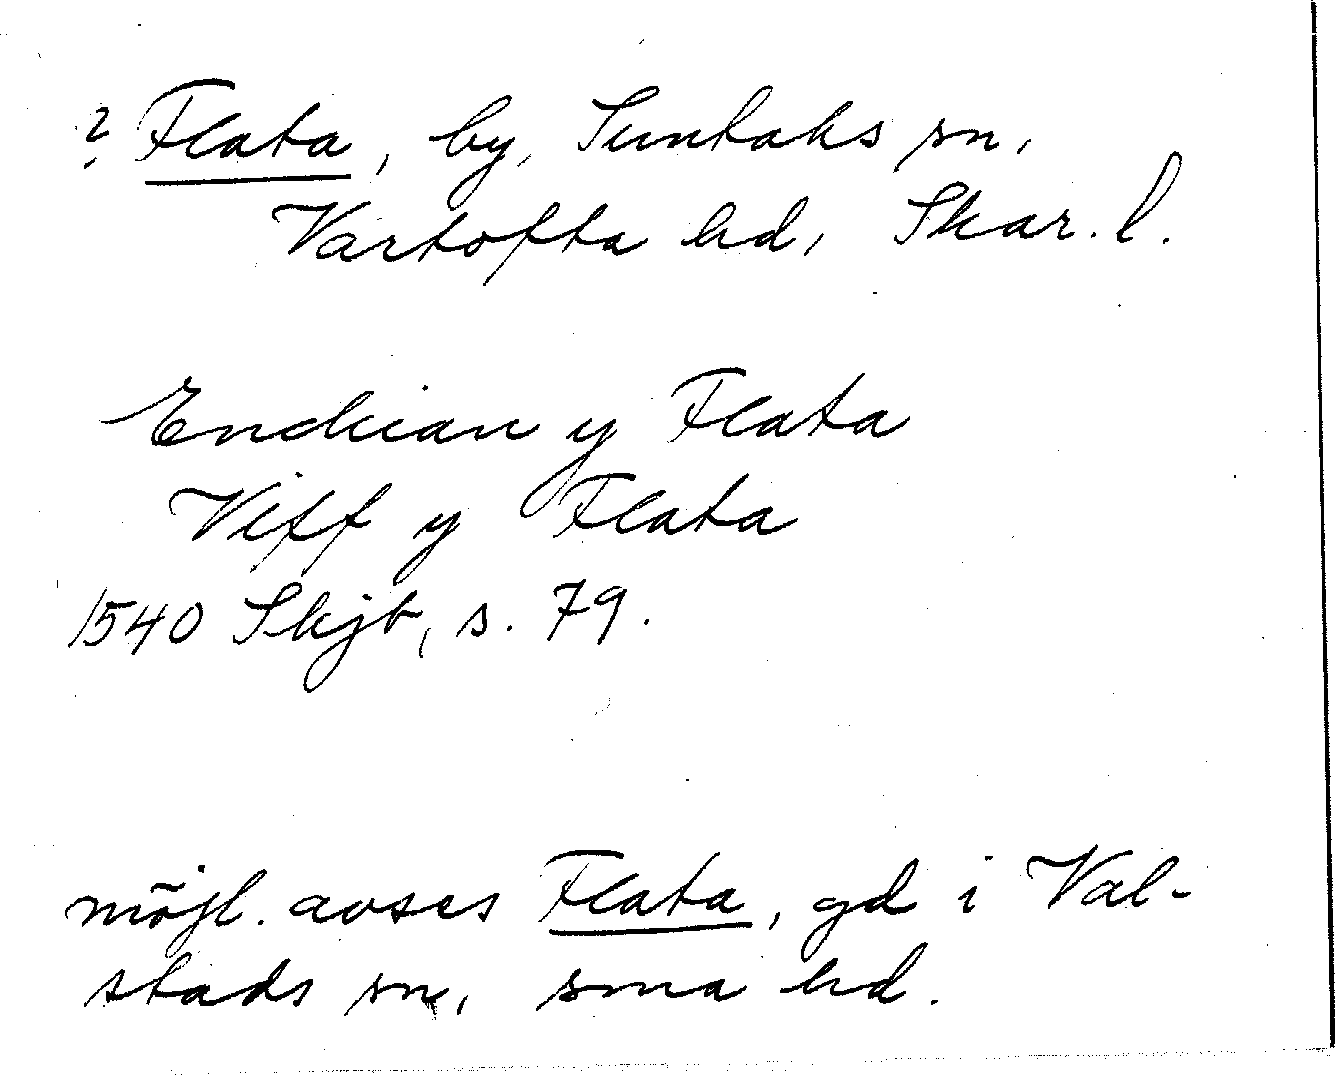 ? Flata, by, Suntaks sn,
Vartofta hd, Skar. l.
Enckian y Flata
Viff y Flata
1540 Skjb, s. 79.
möjl. avses Flata, gd i Val-
stads sn, sma hd.